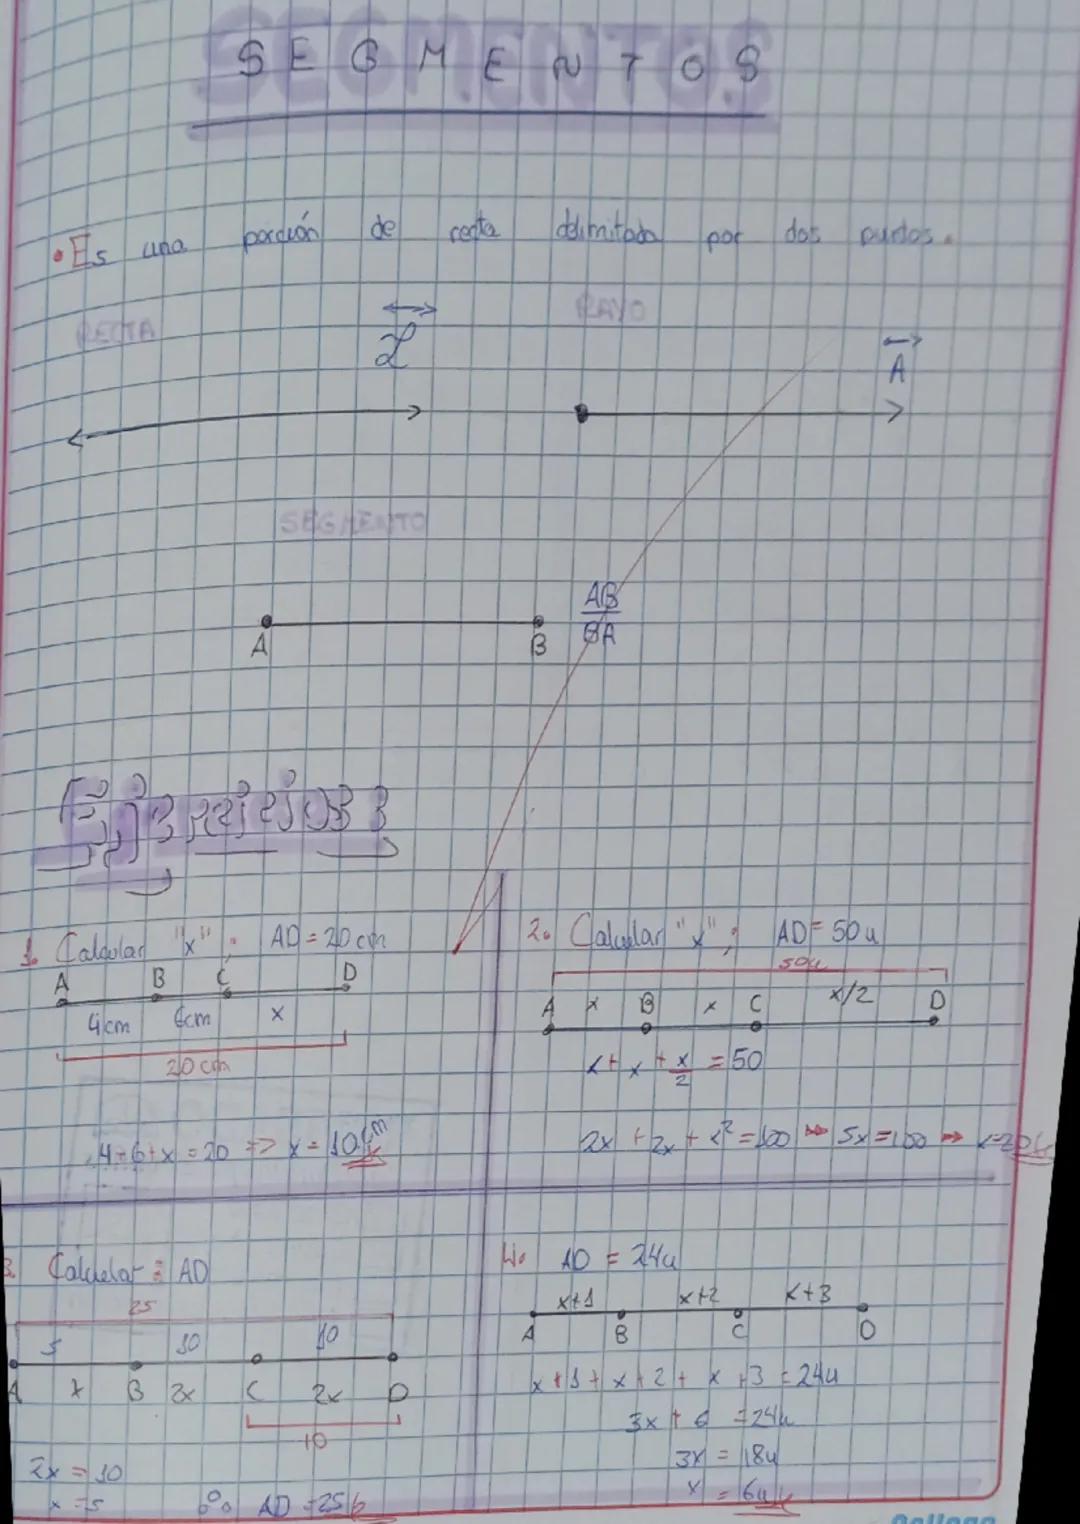 SEGMENTOS
• Es una porción de recta delimitada por dos puntos.
RECTA
L
RAYO
A
SEGMENTO
A B
AB
BA
1. Calcular "x" : AD = 20 cm
A B C D
4cm 6cm x
20 cm
4+6+x = 20 => x = 10 cm
2. Calcular "x" ; AD = 50 u
50u
A x B x C x/2 D
x + x + x/2 = 50
2x + 2x + x² = 100 ⇒ 5x = 100 ⇒ x=20u
3. Calcular : AD
25
5 10 10
A x B 2x C 2x D
10
2x = 10
x = 5
∴ AD = 25
4. AD = 24u
x+1 x+2 x+3
A B C D
x+1+x+2+x+3 = 24u
3x + 6 = 24u
3x = 18u
x = 6u